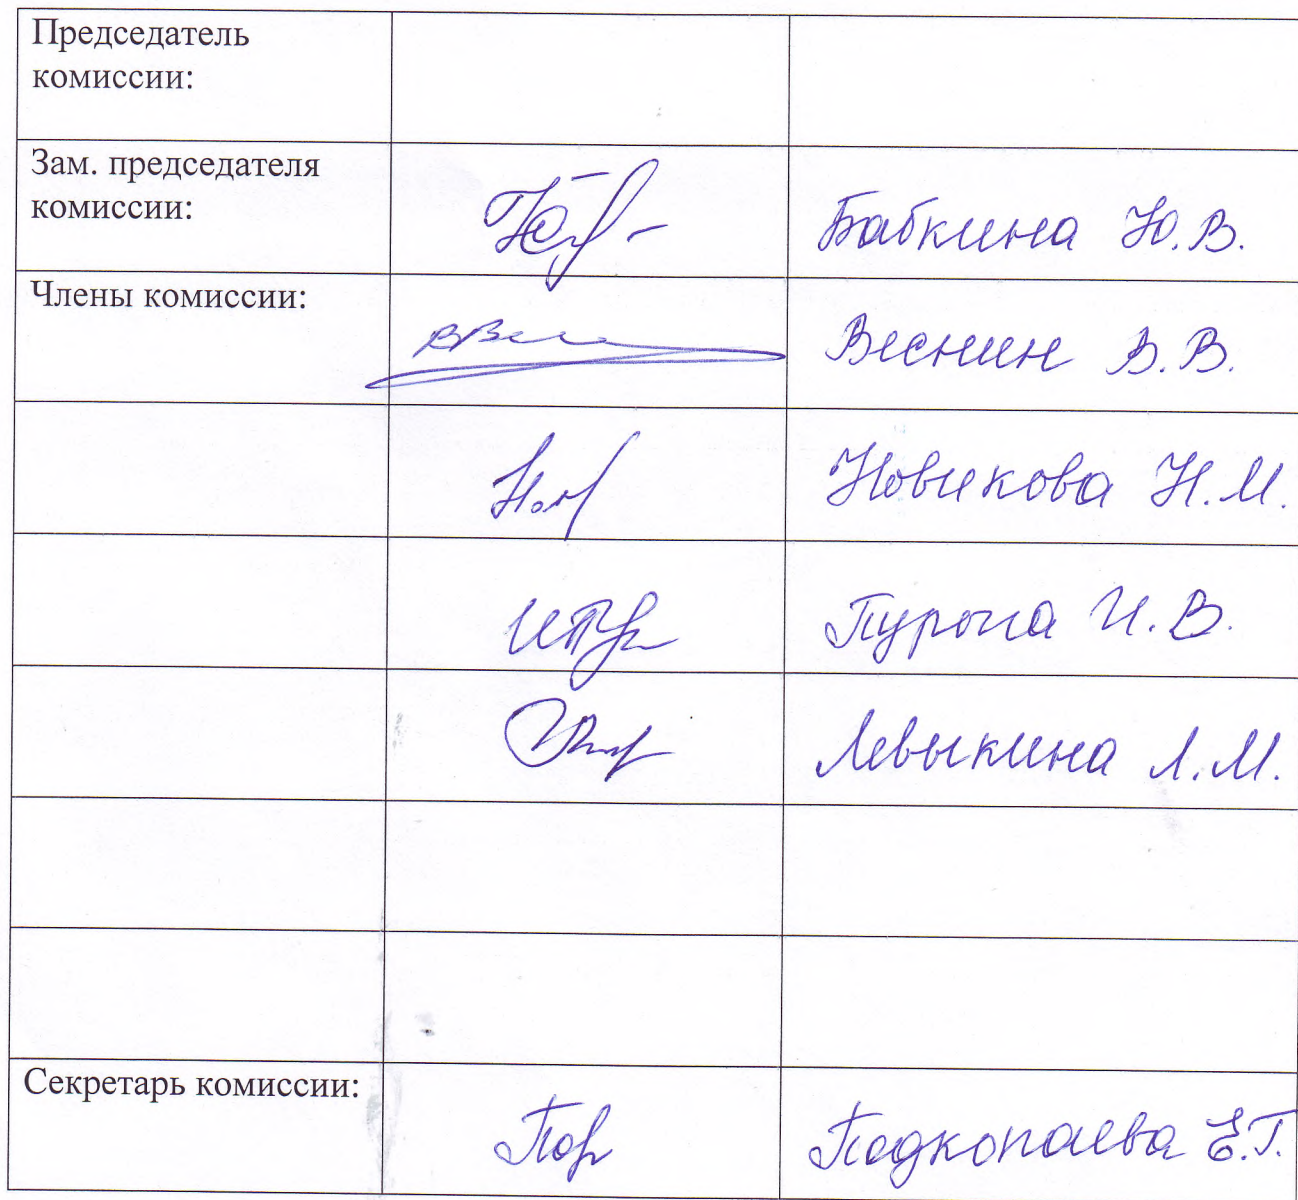 Председатель
комиссии:
Зам. председателя
комиссии:
Бабкина Ю.В.
Члены комиссии:
Веснин В.В.
Новикова Н.М.
И.В.
Левыкина Л.М.
Секретарь комиссии:
Подкопаева Е.Г.